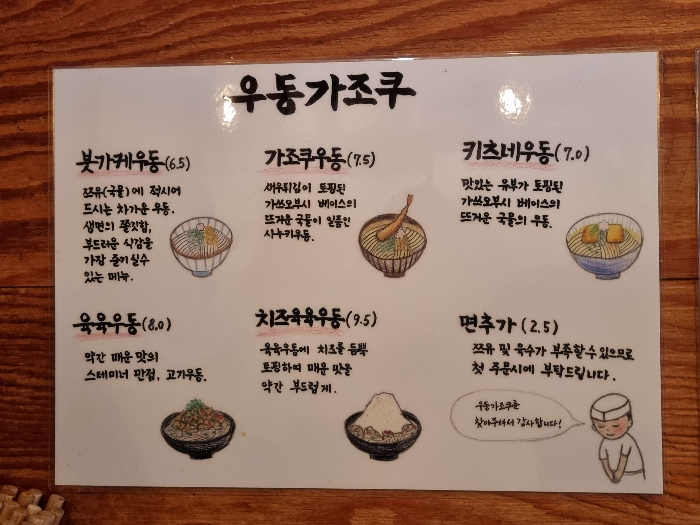 우동가조쿠
붓가케우동(6.5)
쯔유(국물)에 적시어
드시는 차가운 우동.
생면의 쫄깃함,
부드러운 식감을
가장 즐기실수
있는 메뉴.
가조쿠우동(7.5)
새우튀김이 토핑된
가쓰오부시 베이스의
뜨거운 국물이 일품인
사누키우동.
키츠네우동(7.0)
맛있는 유부가 토핑된
가쓰오부시 베이스의
뜨거운 국물의 우동.
육육우동(8.0)
약간 매운 맛의
스테미너 만점, 고기우동.
치즈육육우동(9.5)
육육우동에 치즈를 듬뿍
토핑하여 매운 맛을
약간 부드럽게.
면추가 (2.5)
쯔유 및 육수가 부족할 수 있으므로
첫 주문시에 부탁드립니다.
우동가조쿠를
찾아주셔서 감사합니다!